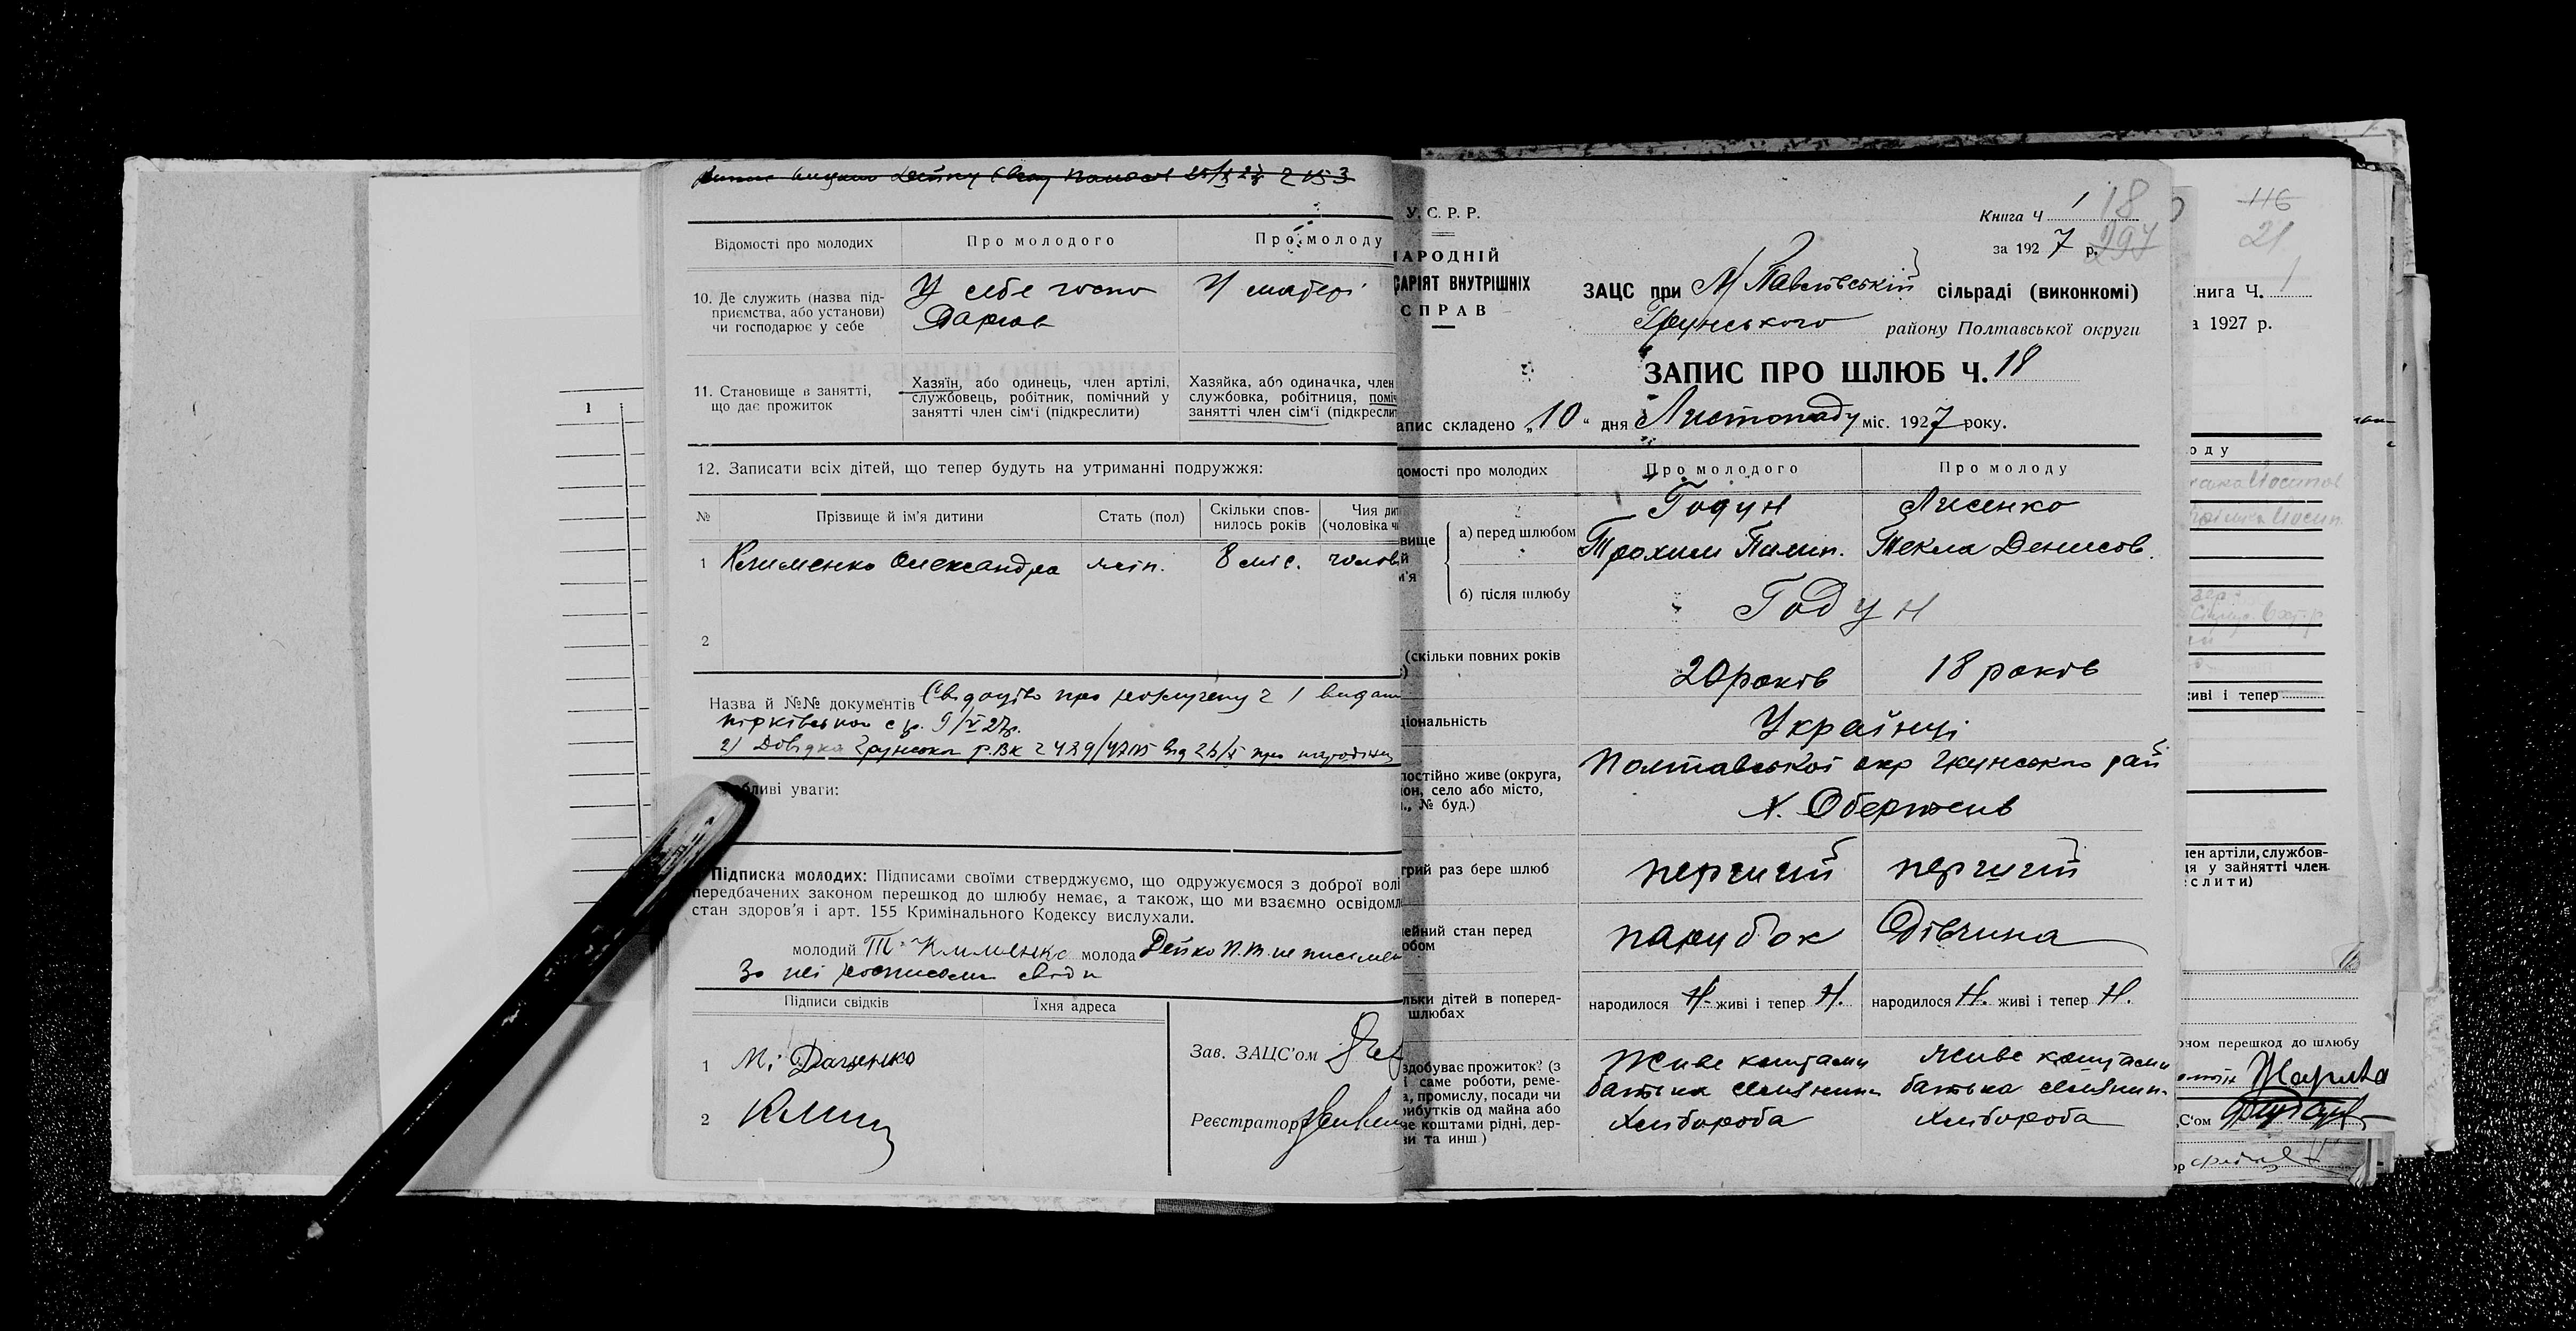 Відомості про молодих
Про молодого
Про молоду
10. Де служить (назва під-
приємства, або установи)
чи господарює у себе
У себе госпо
дарюв
У матері
11. Становище в занятті,
що дає прожиток
Хазяїн, або одинець, член артілі,
службовець, робітник, помічний у
занятті член сім'ї (підкреслити)
Хазяйка, або одиначка, член
службовка, робітниця, поміч
занятті член сім'ї (підкреслит
12. Записати всіх дітей, що тепер будуть на утриманні подружжя:
№
Прізвище й ім'я дитини
Стать (пол)
Скільки спов-
нилось років
Чия дит
(чоловіка ч
1 Клименко Олександра жін. 8 міс. чолов
2
Назва й №№ документів
2) Довідка
бливі уваги:
Підписка молодих: Підписами своїми стверджуємо, що одружуємося з доброї волі
передбачених законом перешкод до шлюбу немає, а також, що ми взаємно освідомл
стан здоров'я і арт. 155 Кримінального Кодексу вислухали.
молодий Т. Клименко молода Дейко П.Т. не письмен
Підписи свідків
Їхня адреса
1 М. Даценко
2
Зав. ЗАЦС'ом
Реєстратор
У. С. Р. Р.
АРОДНІЙ
САРІЯТ ВНУТРІШНІХ
СПРАВ
Книга Ч 1
18
за 1927 р.
297
ЗАЦС при М Павлівській сільраді (виконкомі)
Грунського району Полтавської округи
ЗАПИС ПРО ШЛЮБ Ч. 18
апис складено „10“ дня Листопаду міс. 1927 року.
домості про молодих
Про молодого
Про молоду
вище
й
м'я
а) перед шлюбом
Годун
Трохим Пилип.
Лисенко
Текла Денисов.
б) після шлюбу
Годун
(скільки повних років
20 років
18 років
ціональність
Українці
постійно живе (округа,
он, село або місто,
., № буд.)
Полтавської окр Грунського рай
х. Обертень
трий раз бере шлюб
перший
перший
ейний стан перед
обом
парубок
Дівчина
льки дітей в поперед-
шлюбах
народилося Н. живі і тепер Н.
народилося Н. живі і тепер Н.
здобуває прожиток? (з
і саме роботи, реме-
а, промислу, посади чи
рибутків од майна або
ве коштами рідні, дер-
ви та инш.)
Живе коштами
батька селянина
Хлібороба
живе коштами
батька селянин.
Хлібороба
116
21
Книга Ч. 1
а 1927 р.
оду
живі і тепер
лен артіли, службов-
ця у зайнятті член
еслити)
оном перешкод до шлюбу
С'ом
ор
1